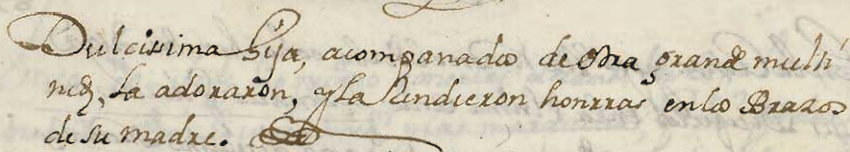 Dulcisima hija, acompanados de otra grande multi
nd, la adoraron, y la rindieron honrras en los Brazos
de su madre.